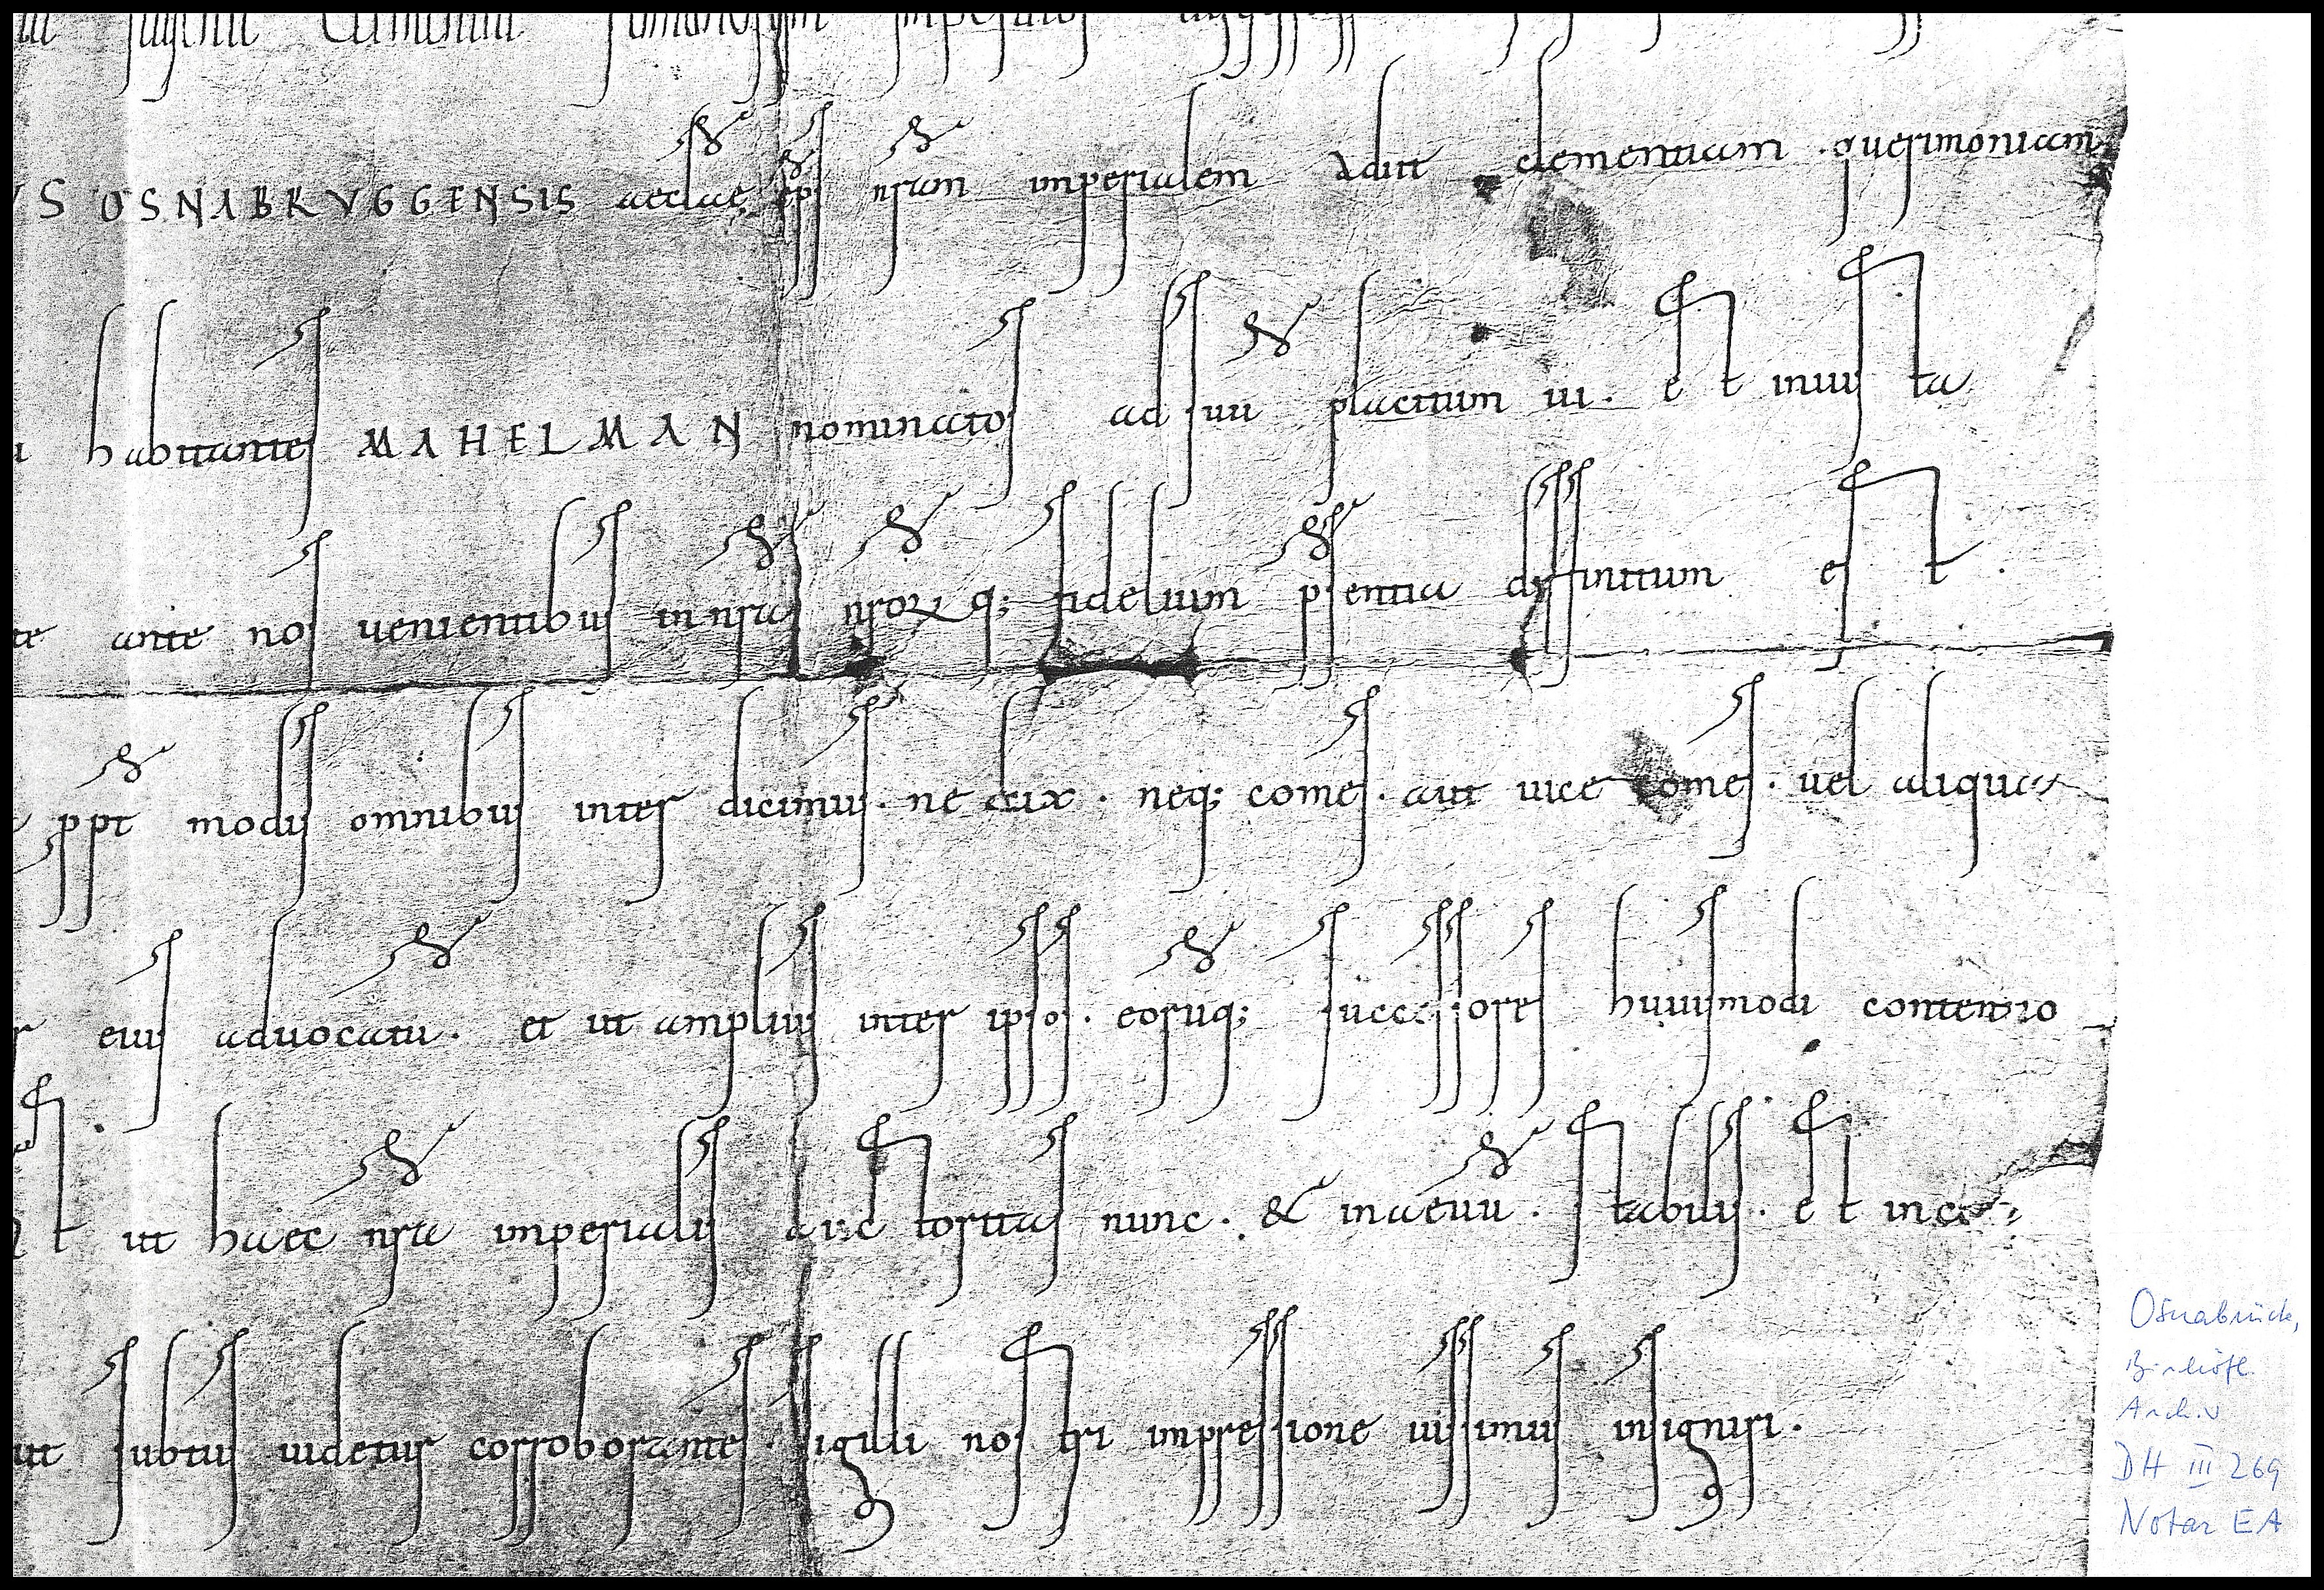 clementia romanorum imperator
VS OSNABRVGGENSIS aecclae eps nram imperialem adiit clementiam · querimoniam
habitantes MAHELMAN nominatos ad sui placitum ui . est inuista
te ante nos uenientibus in nras nrorq; fidelium psentia diffinitum est .
ppt modis omnibus inter dicimus · ne dux · neq; comes · aut uice comes · uel aliqua
r eius aduocatu . et ut amplius inter ipsos · eoruq; successores huiusmodi contentio
ut haec nra imperialis auctoritas nunc · & inaeuu · stabilis · et inco
ut subtus uidetur corroborantes · sigilli nostri impressione iussimus insigniri ·
Osnabrück,
Bischöfl.
Archiv
DH III 269
Notar EA